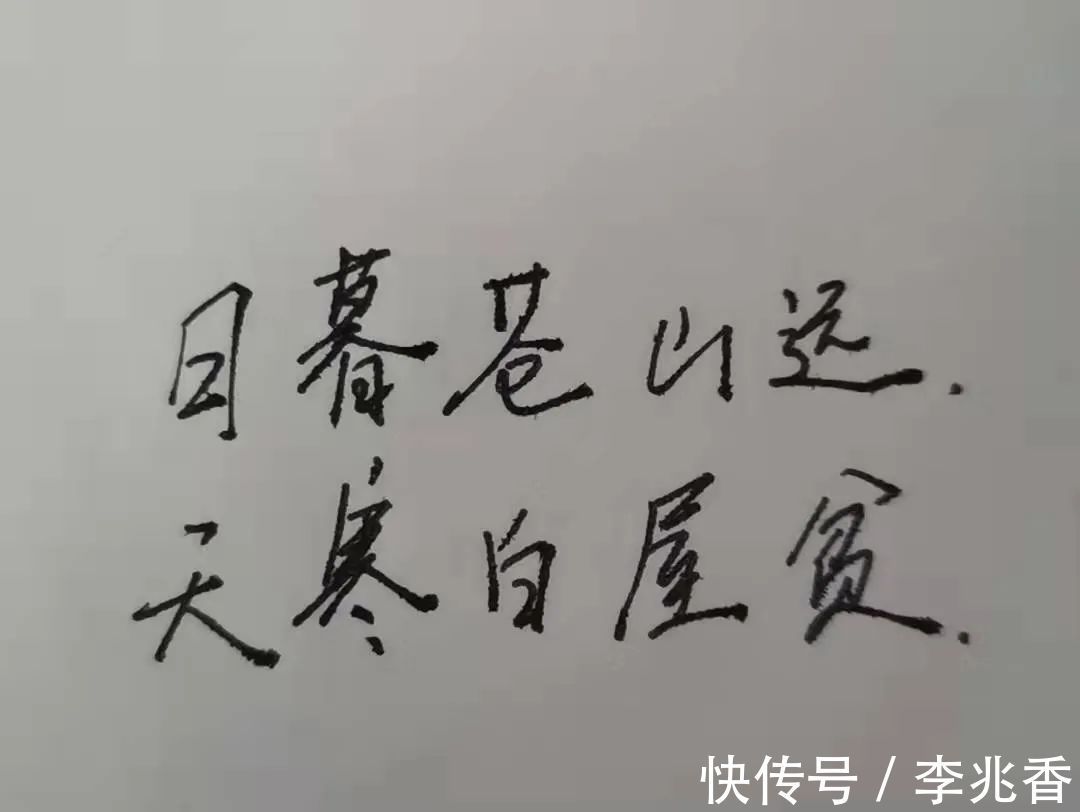 日暮苍山远.
天寒白屋贫.
快传号 / 李兆香